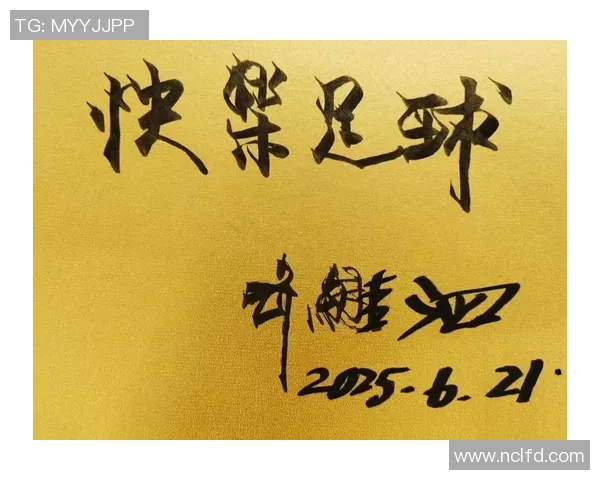 TG: MYYJJPP
快樂足球
2025.6.21.
www.nclfd.com